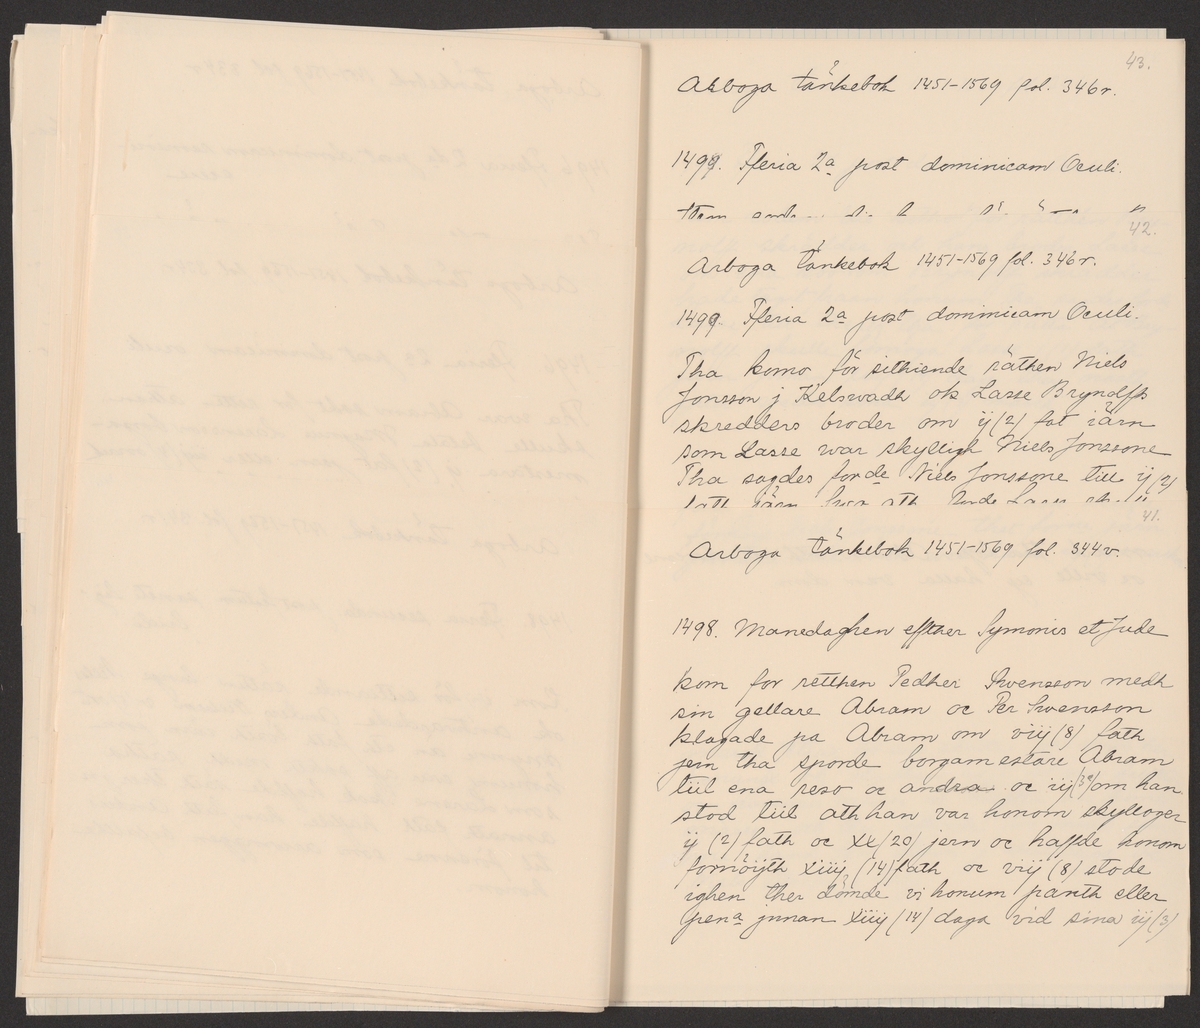 43.
Arboga tänkebok 1451-1569 fol. 346r.
1499. Fferia 2a post dominicam Oculi.
42.
Arboga tänkebok 1451-1569 fol. 346r.
1499. Fferia 2a post dominicam Oculi.
Tha komo för sithiende räthen Niels
Jonsson j Kelswadh ok Lasse Bryndlffs
skredders broder om ij (2) fat iärn
som Lasse war skylligh Niels Jonssone
Tha sagdes forde Niels Jonssone till ij (2)
41.
Arboga tänkebok 1451-1569 fol. 344v.
1498. Manedaghen effther Symonis et Jude
kom for retthen Pedher Swensson medh
sin gellare Abram oc Per Swensson
klagade pa Abram om viij (8) fath
jern tha sporde borgamestare Abram
tiil ena reso oc andra oc iij (3e) om han
stod tiil ath han var honom skylloger
ij (2) fath oc xx (20) jern oc haffde honom
fornöijth xiiij (14) fath oc viij (8) stode
ighen ther dömde vi honum panth eller
pena jnnan xiiij (14) daga vid sina iij (3)